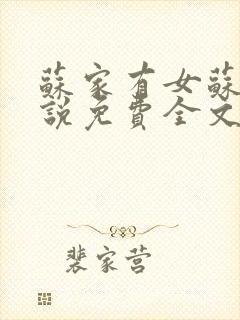 蘇家有女蘇
說免費全文
裴家营